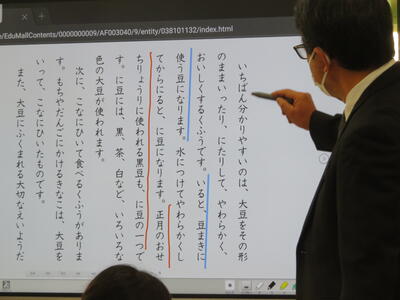 /EduMallContents/0000000009/AF003040/9/entity/038101132/index.html
いちばん分かりやすいのは、大豆をその形
のままいったり、にたりして、やわらかく、
おいしくするくふうです。いると、豆まきに
使う豆になります。水につけてやわらかくし
てからにると、に豆になります。正月のおせ
ちりょうりに使われる黒豆も、に豆の一つで
す。に豆には、黒、茶、白など、いろいろな
色の大豆が使われます。
次に、こなにひいて食べるくふうがありま
す。もちやだんごにかけるきなこは、大豆を
いって、こなにひいたものです。
また、大豆にふくまれる大切なえいようだ